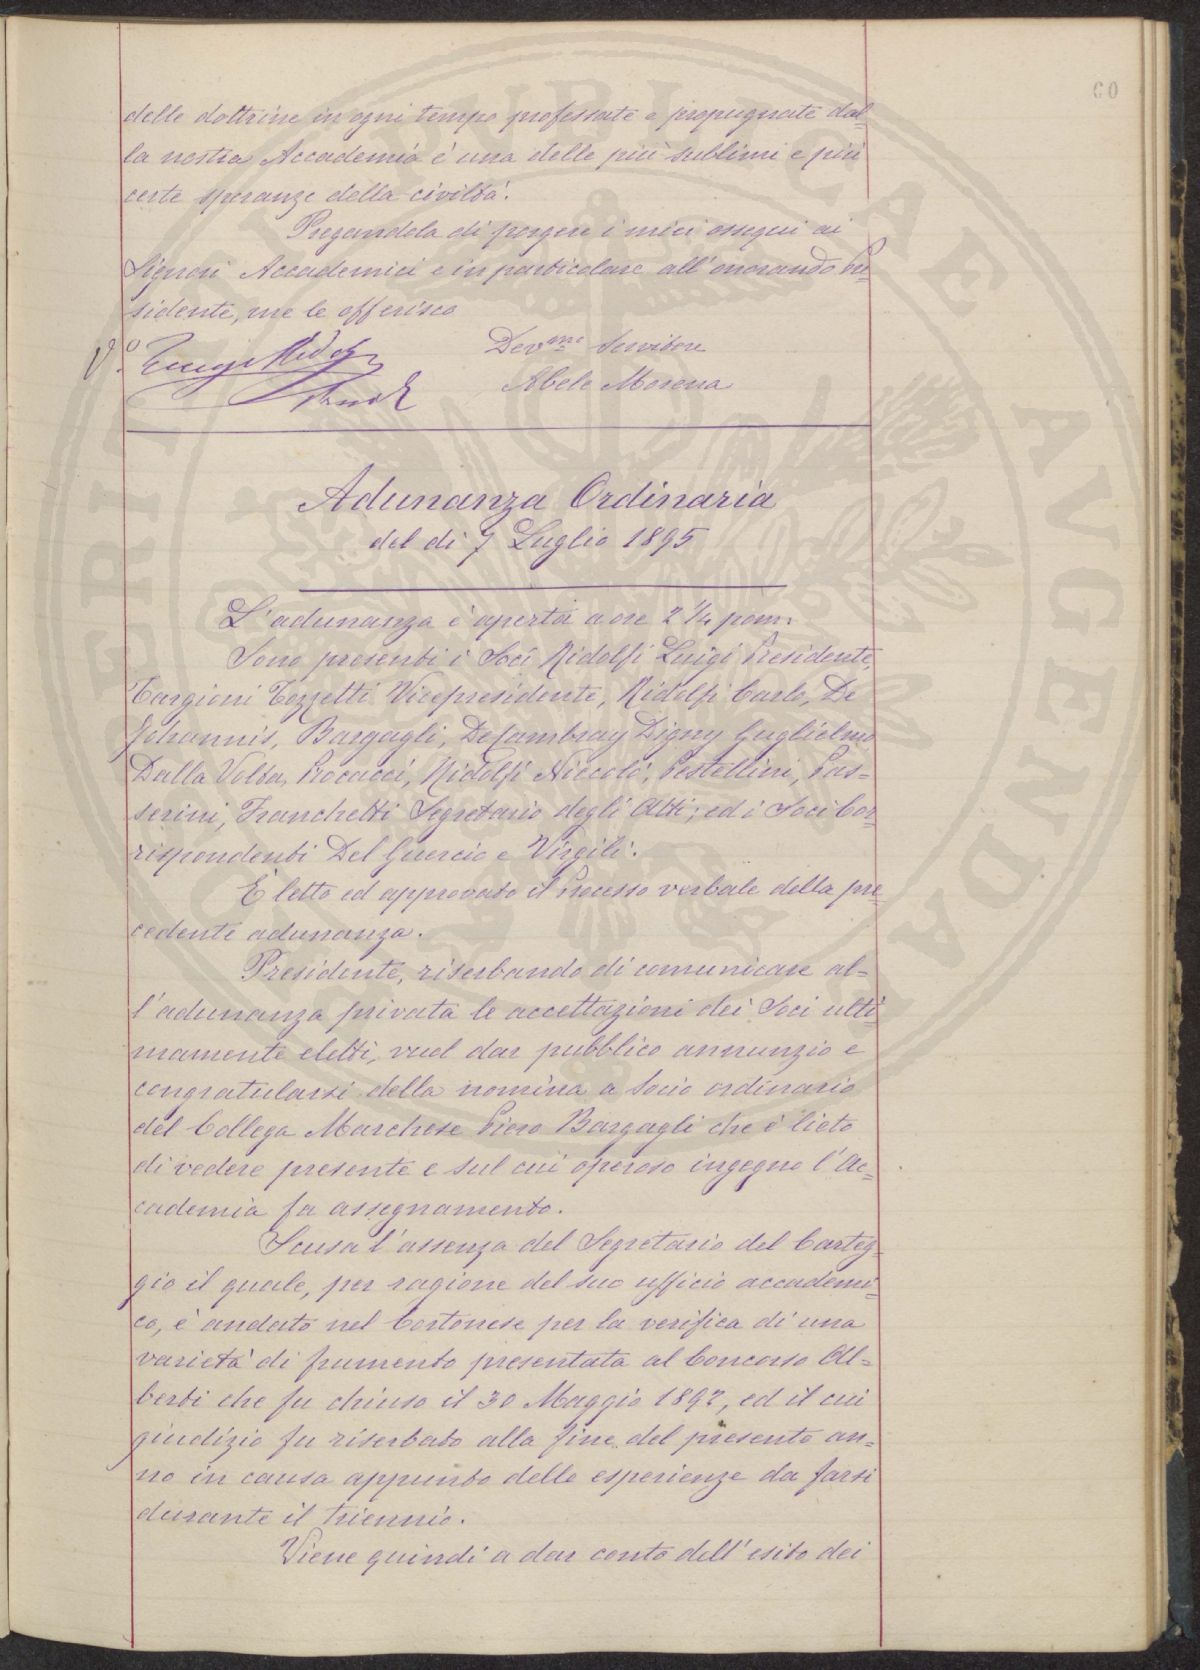 60
delle dottrine in ogni tempo professate e propugnate dal-
la nostra Accademia è una delle più sublimi e più
certe speranze della civiltà.
Pregandola di porgere i miei ossequi ai
Signori Accademici e in particolare all'onorando Pre-
sidente, me le offerisco
Devmo Servitore
V°. Luigi Ridolfi
Abele Morena
Adunanza Ordinaria
del dì 7 Luglio 1895
L'adunanza è aperta a ore 2 1/4 pom:
Sono presenti i Soci Ridolfi Luigi Presidente,
Targioni Tozzetti Vicepresidente, Ridolfi Carlo, De
Johannis, Bargagli, De Cambray Digny Guglielmo
Dalla Volta, Procacci, Ridolfi Niccolò, Pestellini, Pas-
serini, Franchetti Segretario degli Atti; ed i Soci Cor-
rispondenti Del Guercio e Virgili.
È letto ed approvato il Processo verbale della pre-
cedente adunanza.
Presidente, riserbando di comunicare al-
l'adunanza privata le accettazioni dei Soci ulti-
mamente eletti, vuol dar pubblico annunzio e
congratularsi della nomina a Socio ordinario
del Collega Marchese Piero Bargagli che è lieto
di vedere presente e sul cui operoso ingegno l'Ac-
cademia fa assegnamento.
Scusa l'assenza del Segretario del Carteg-
gio il quale, per ragione del suo ufficio accademi-
co, è andato nel Cortonese per la verifica di una
varietà di frumento presentata al Concorso Al-
berti che fu chiuso il 30 Maggio 1892, ed il cui
giudizio fu riserbato alla fine del presente an-
no in causa appunto delle esperienze da farsi
durante il triennio.
Viene quindi a dar conto dell'esito dei